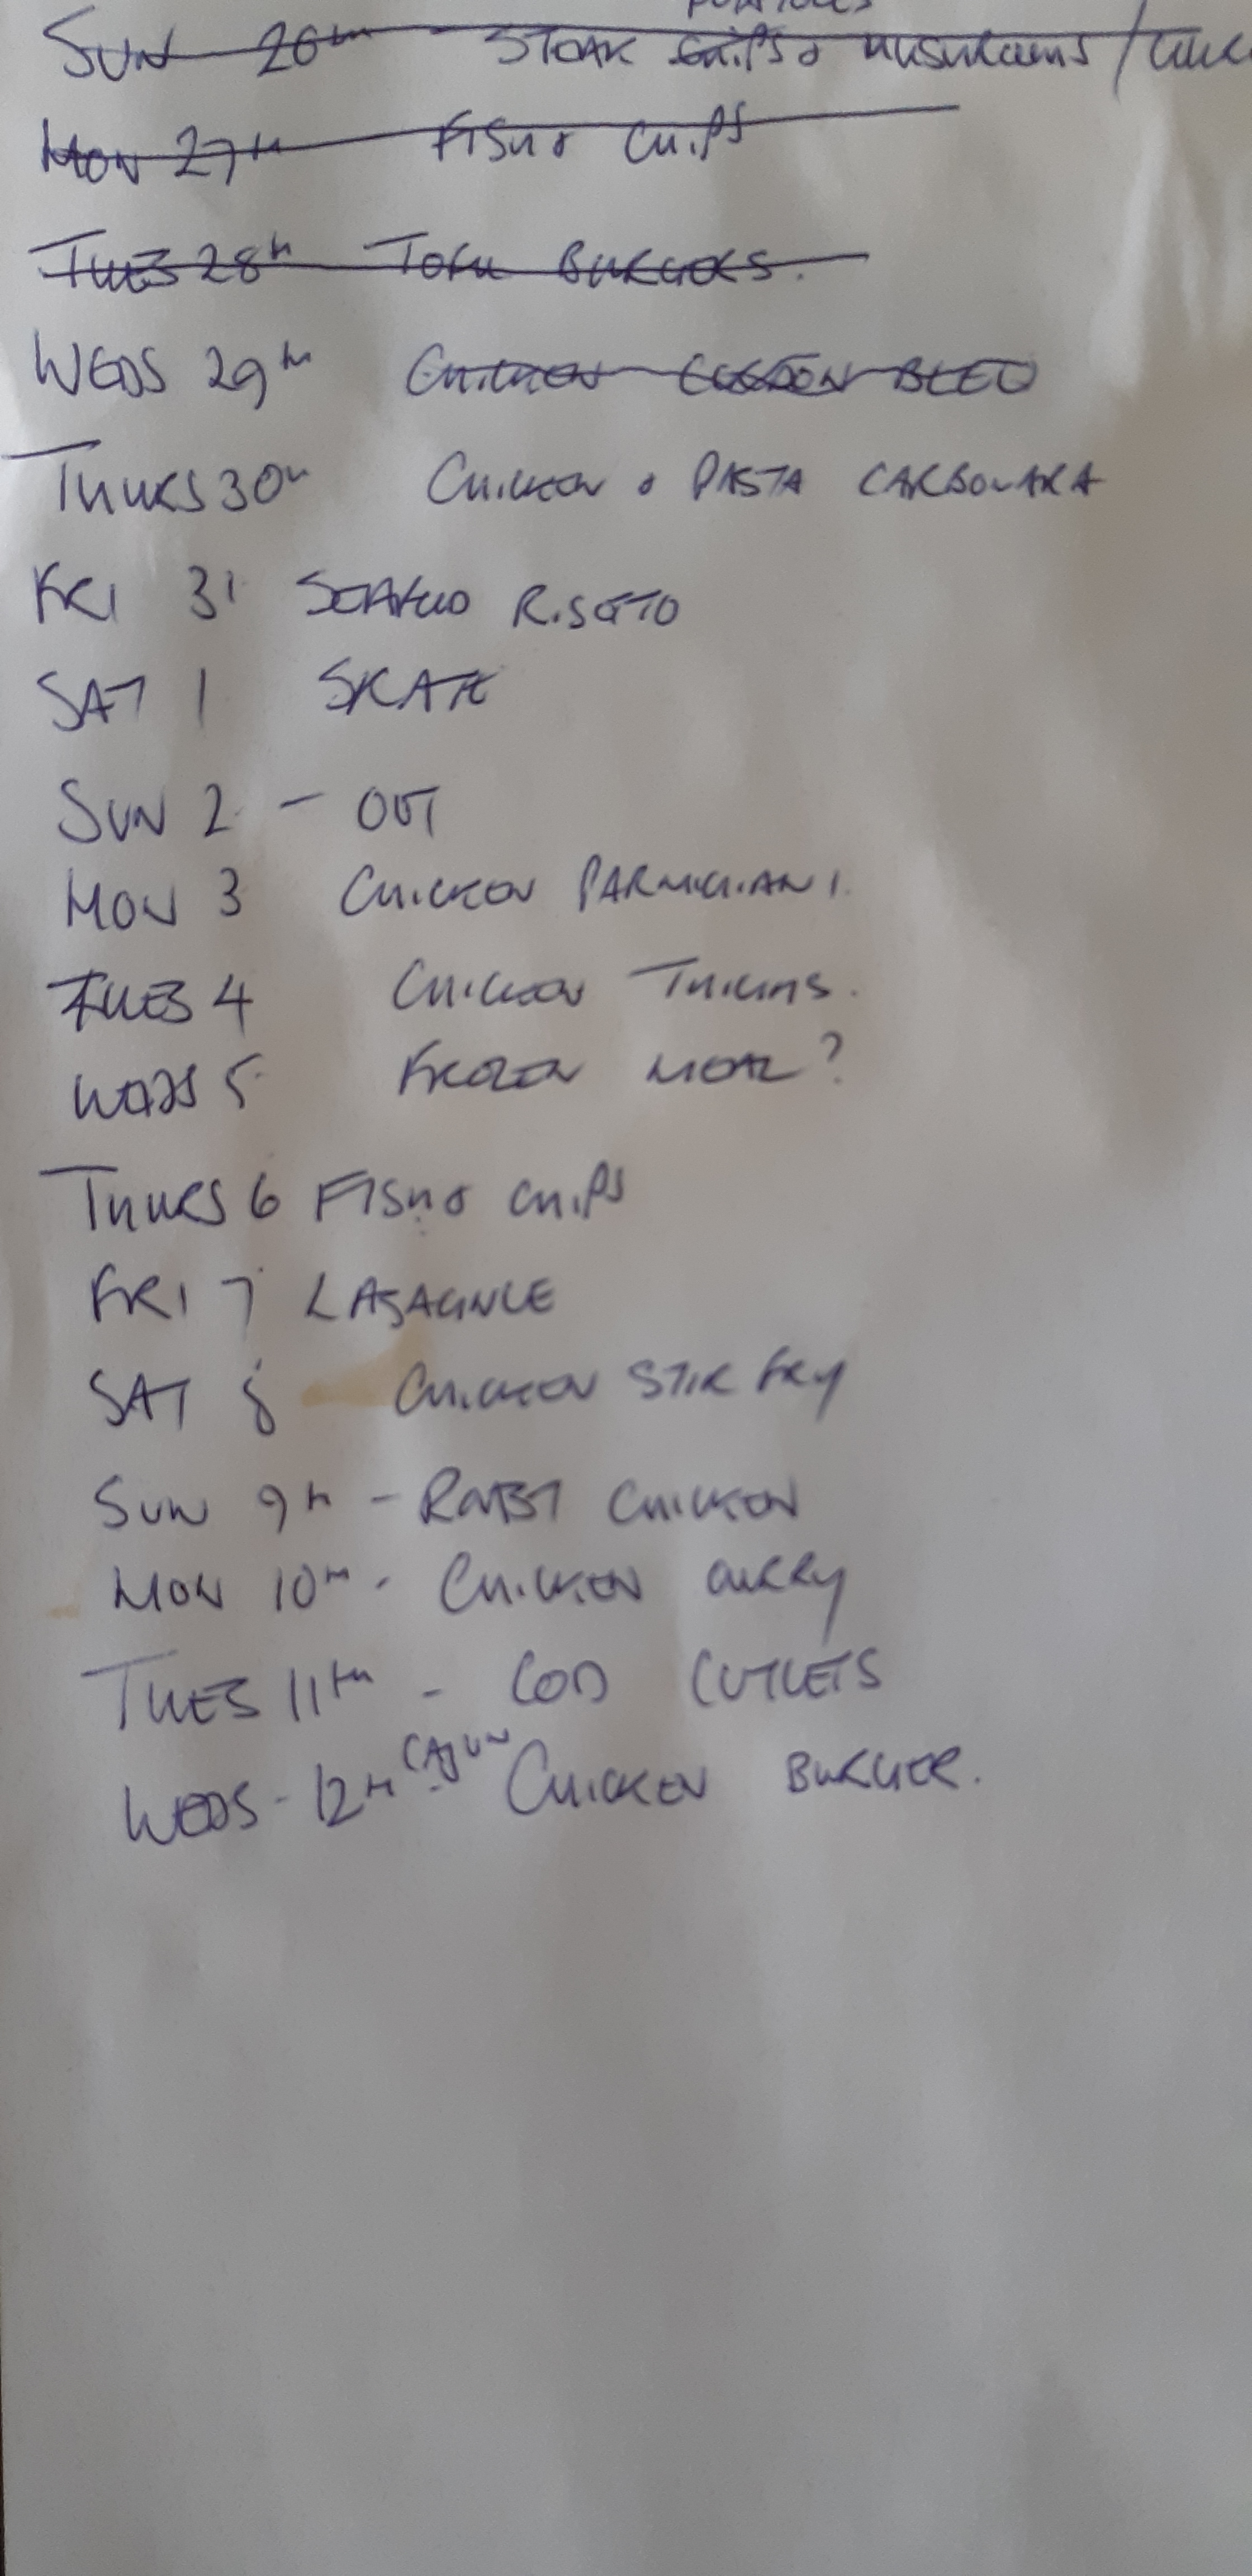 SUN 26th STEAK CHIPS & MUSHROOMS /
MON 27th FISH & CHIPS
TUES 28th TOFU BURGERS.
WEDS 29th CHICKEN CORDON BLEU
THURS 30th CHICKEN & PASTA CARBONARA
FRI 31 SEAFOOD RISOTO
SAT 1 SKATE
SUN 2 - OUT
MON 3 CHICKEN PARMIGIANI.
TUES 4 CHICKEN THIGHS.
WEDS 5 FROZEN MEAL?
THURS 6 FISH & CHIPS
FRI 7 LASAGNLE
SAT 8 CHICKEN STIR FRY
SUN 9th - ROAST CHICKEN
MON 10th - CHICKEN CURRY
TUES 11th - COD CUTLETS
WEDS - 12th CAJUN CHICKEN BURGER.